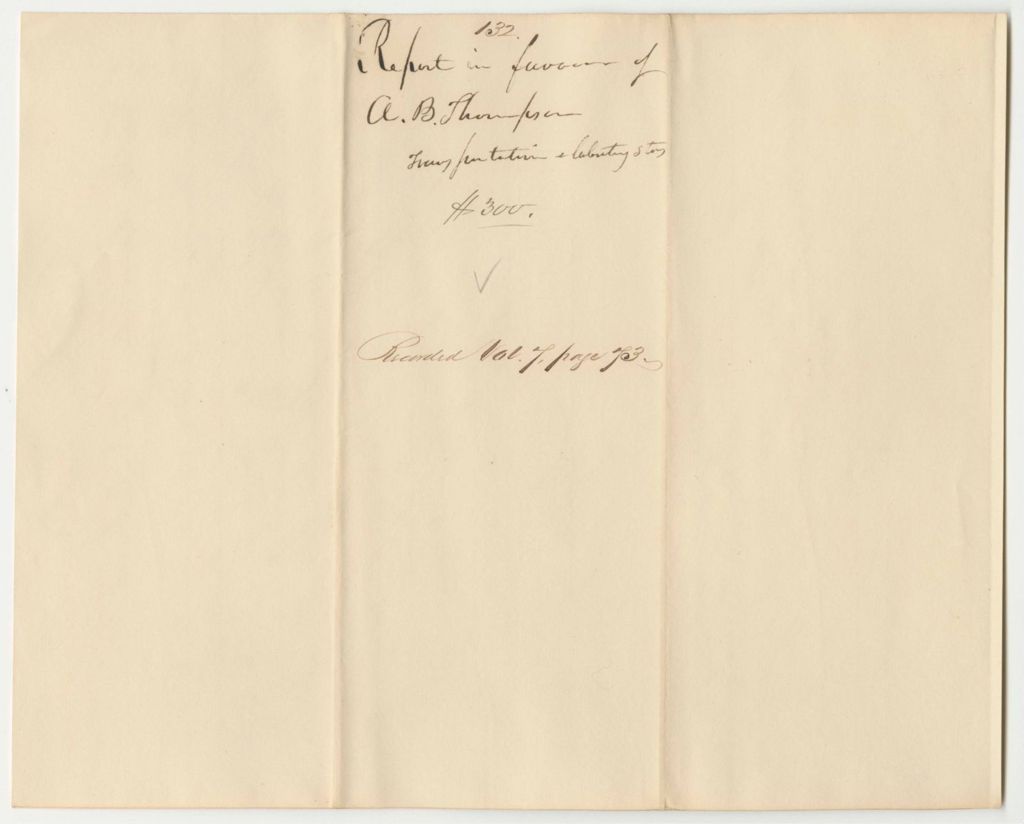 132.
Report in favour of
A. B. Thompson
Transportation & laboratory stores
$300.
Recorded Vol. 7, page 73.